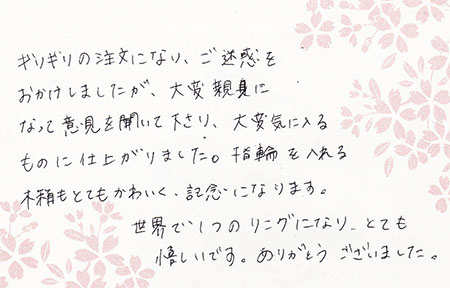 ギリギリの注文になり、ご迷惑を
おかけしましたが、大変親身に
なって意見を聞いて下さり、大変気に入る
ものに仕上がりました。指輪を入れる
木箱もとてもかわいく、記念になります。
世界で1つのリングになり、とても
嬉しいです。ありがとうございました。